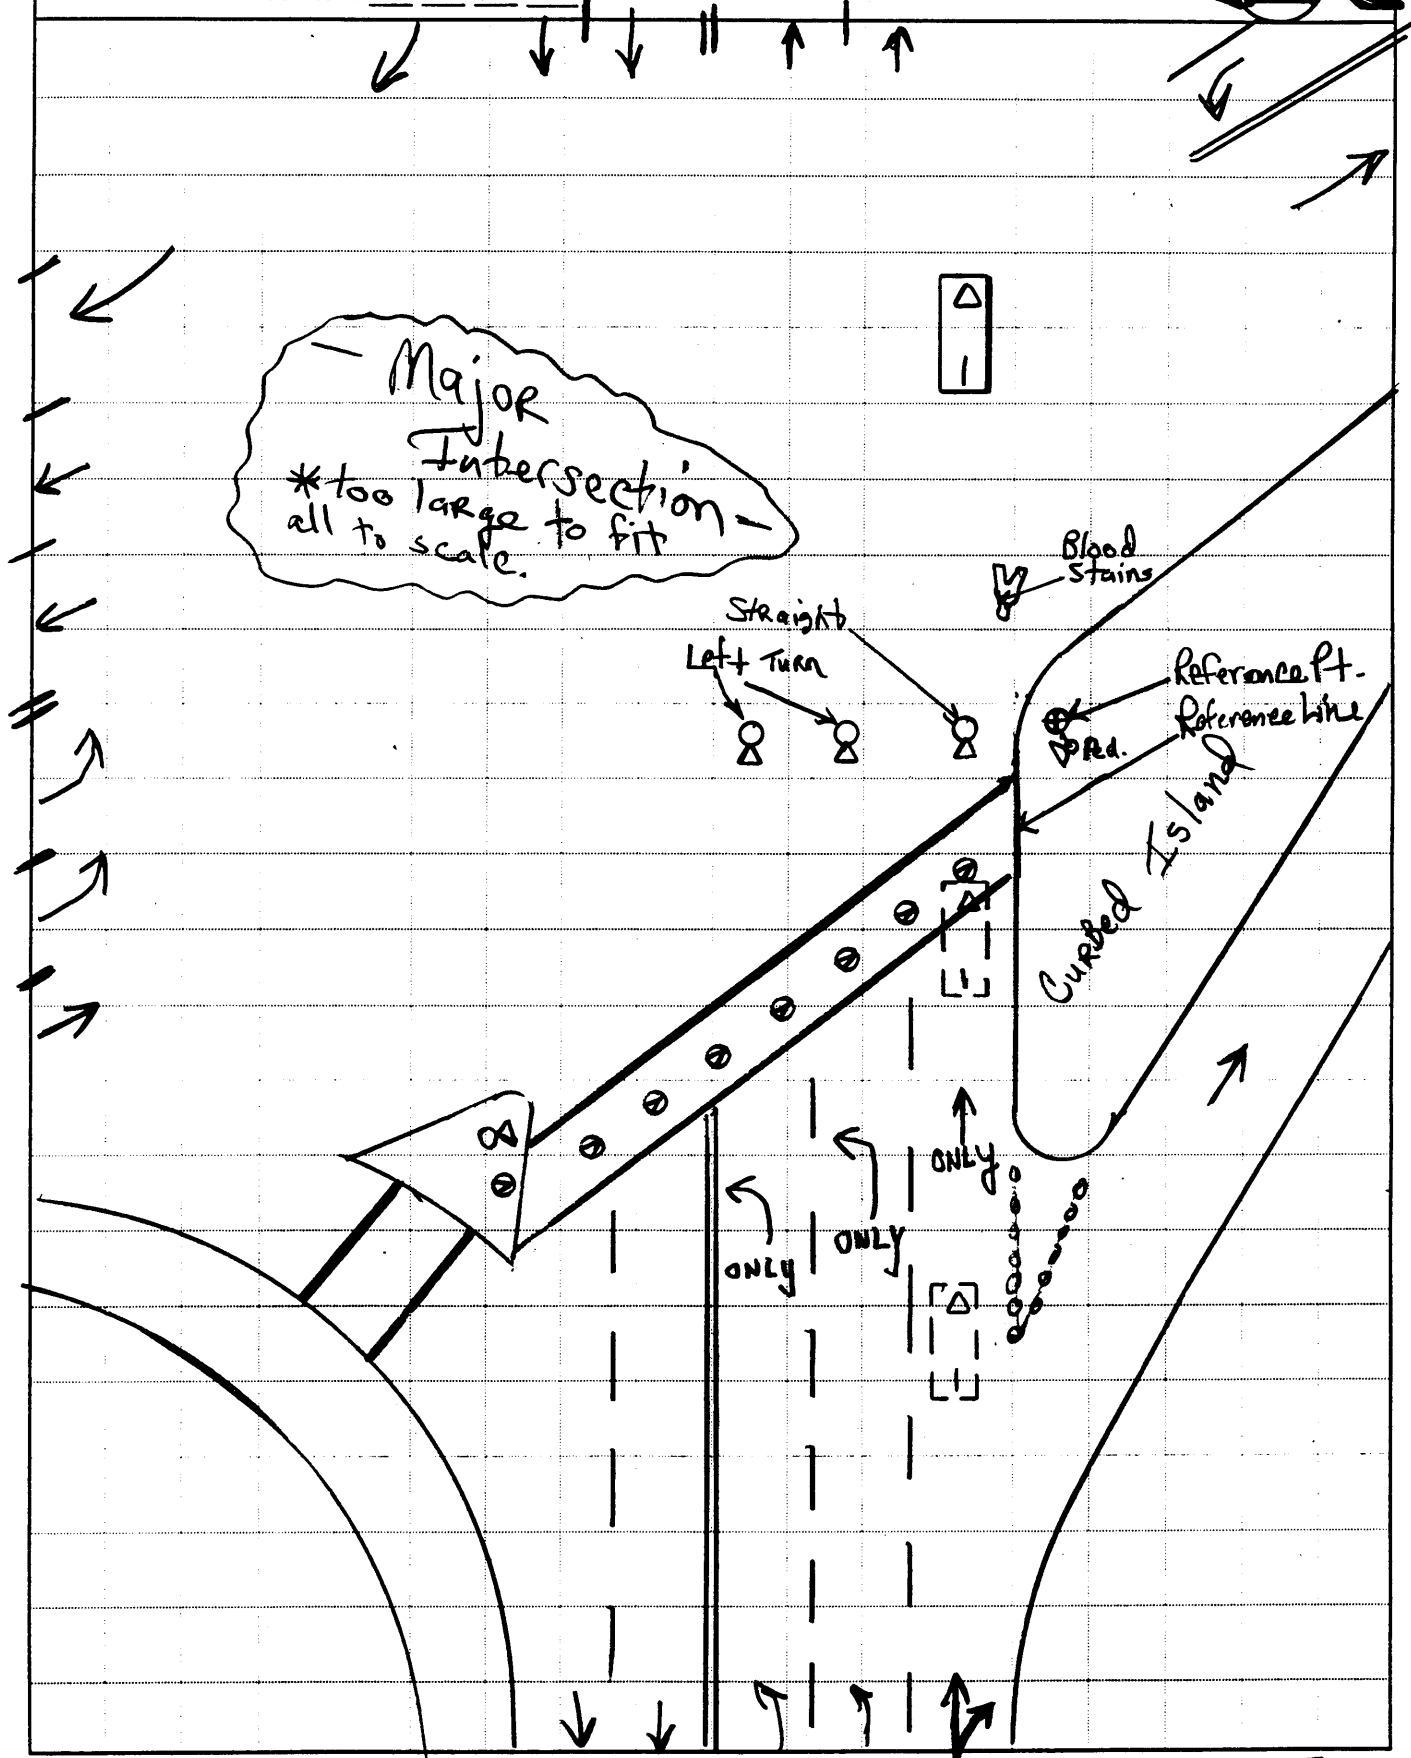 — Major
Intersection —
*too large to fit
all to scale.
Blood
Stains
Straight
Left Turn
Reference Pt.
Reference Line
Ped.
Curbed Island
ONLY
ONLY
ONLY